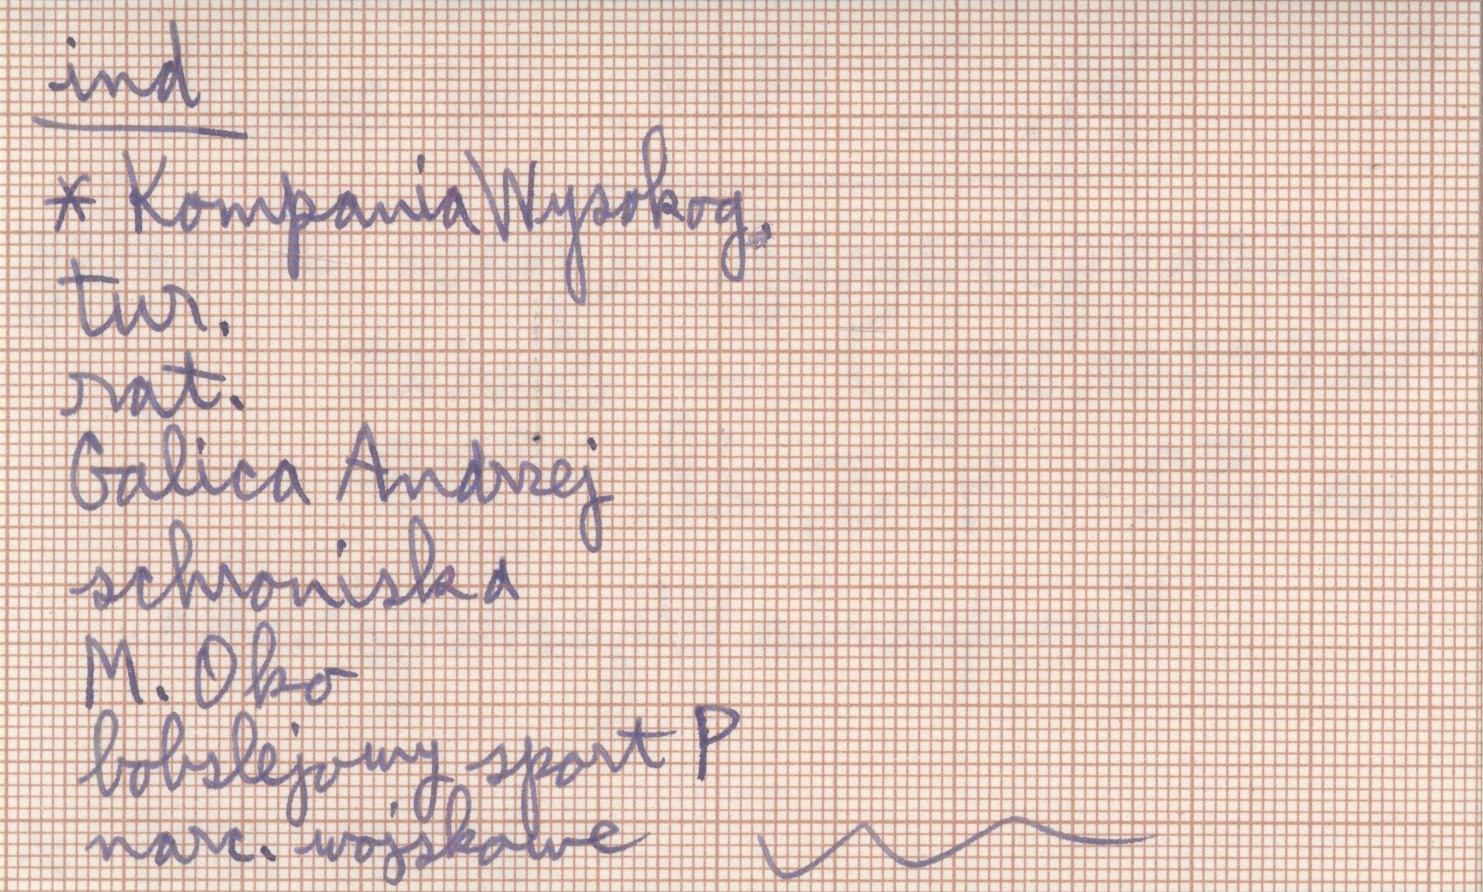 ind
* Kompania Wysokog.
tur.
rat.
Galica Andrzej
schroniska
M. Oko
bobslejowy sport P
narc. wojskowe